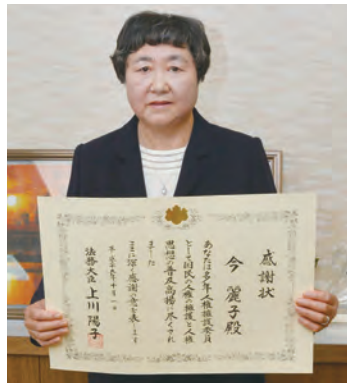 感謝状
今 麗子殿
あなたは多年人権擁護委員
として国民の人権の擁護と人権
思想の普及高揚に尽くされ
ました
ここに深く感謝の意を表します
平成二十九年十月一日
法務大臣 上川陽子